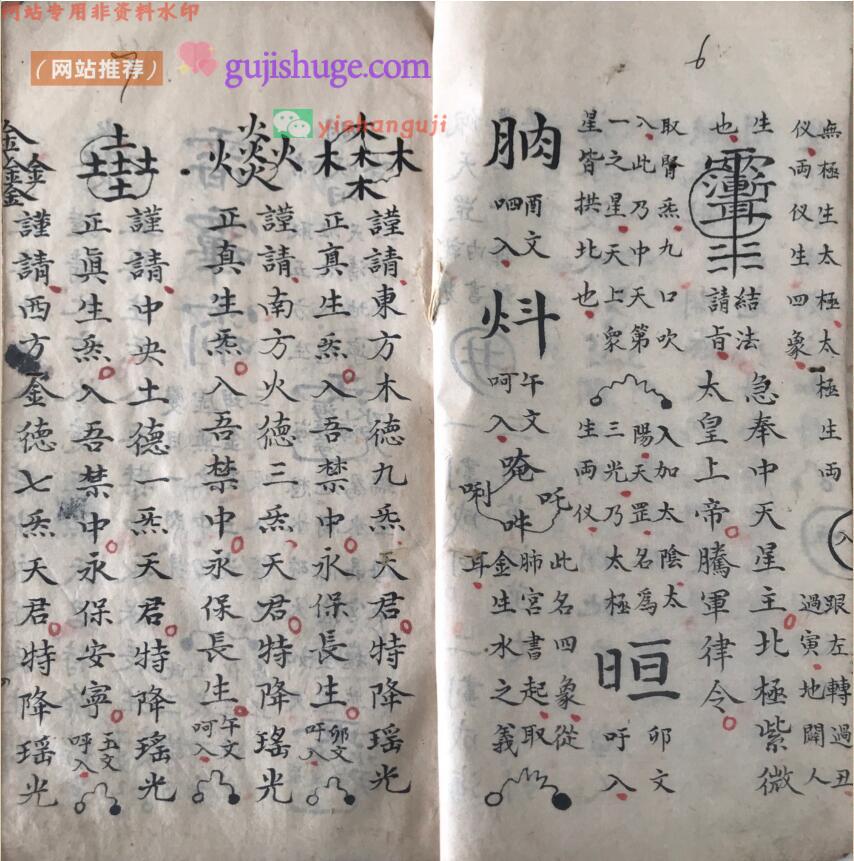 网站专用非资料水印
（网站推荐）
gujishuge.com
yishanguji
6
無極生太極太極生両
仪両仪生四象
入
跟左轉過丑
過寅地闢人
生
也
結法
請旨
急奉中天星主北極紫微
太皇上帝騰軍律令
取腎炁九口吹
入此乃中天第
一之星天上衆
星皆拱北也
入加太陰太
陽天罡名爲
三光乃太極
生両仪
晅
卯文
吁入
肭
酉文
呬入
炓
午文
呵入
唵
吒
唎
吽
此名四象從
肺宮書起取
金生水之義
耳
7
木木木木木
謹請東方木德九炁天君特降瑤光
正真生炁入吾禁中永保長生
卯文
吁入
火火火火火
謹請南方火德三炁天君特降瑤光
正真生炁入吾禁中永保長生
午文
呵入
土土土土土
謹請中央土德一炁天君特降瑤光
正眞生炁入吾禁中永保安寧
五文
呼入
金金金金金
謹請西方金德七炁天君特降瑤光